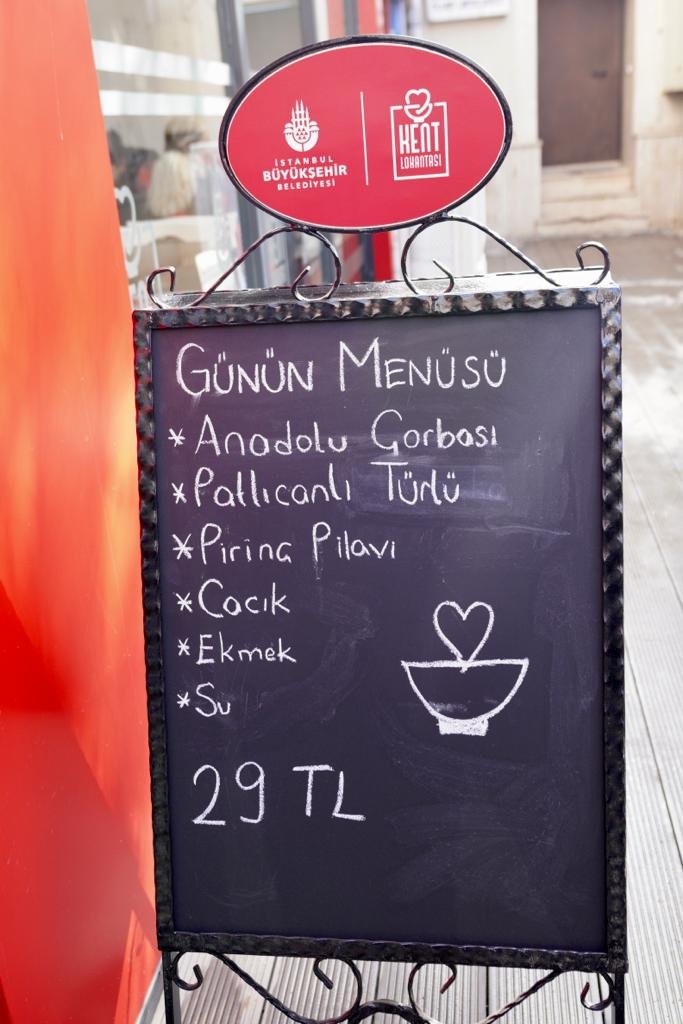 İSTANBUL
BÜYÜKŞEHİR
BELEDİYESİ
KENT
LOKANTASI
GÜNÜN MENÜSÜ
* Anadolu Çorbası
* Patlıcanlı Türlü
* Pirinç Pilavı
* Cacık
* Ekmek
* Su
29 TL